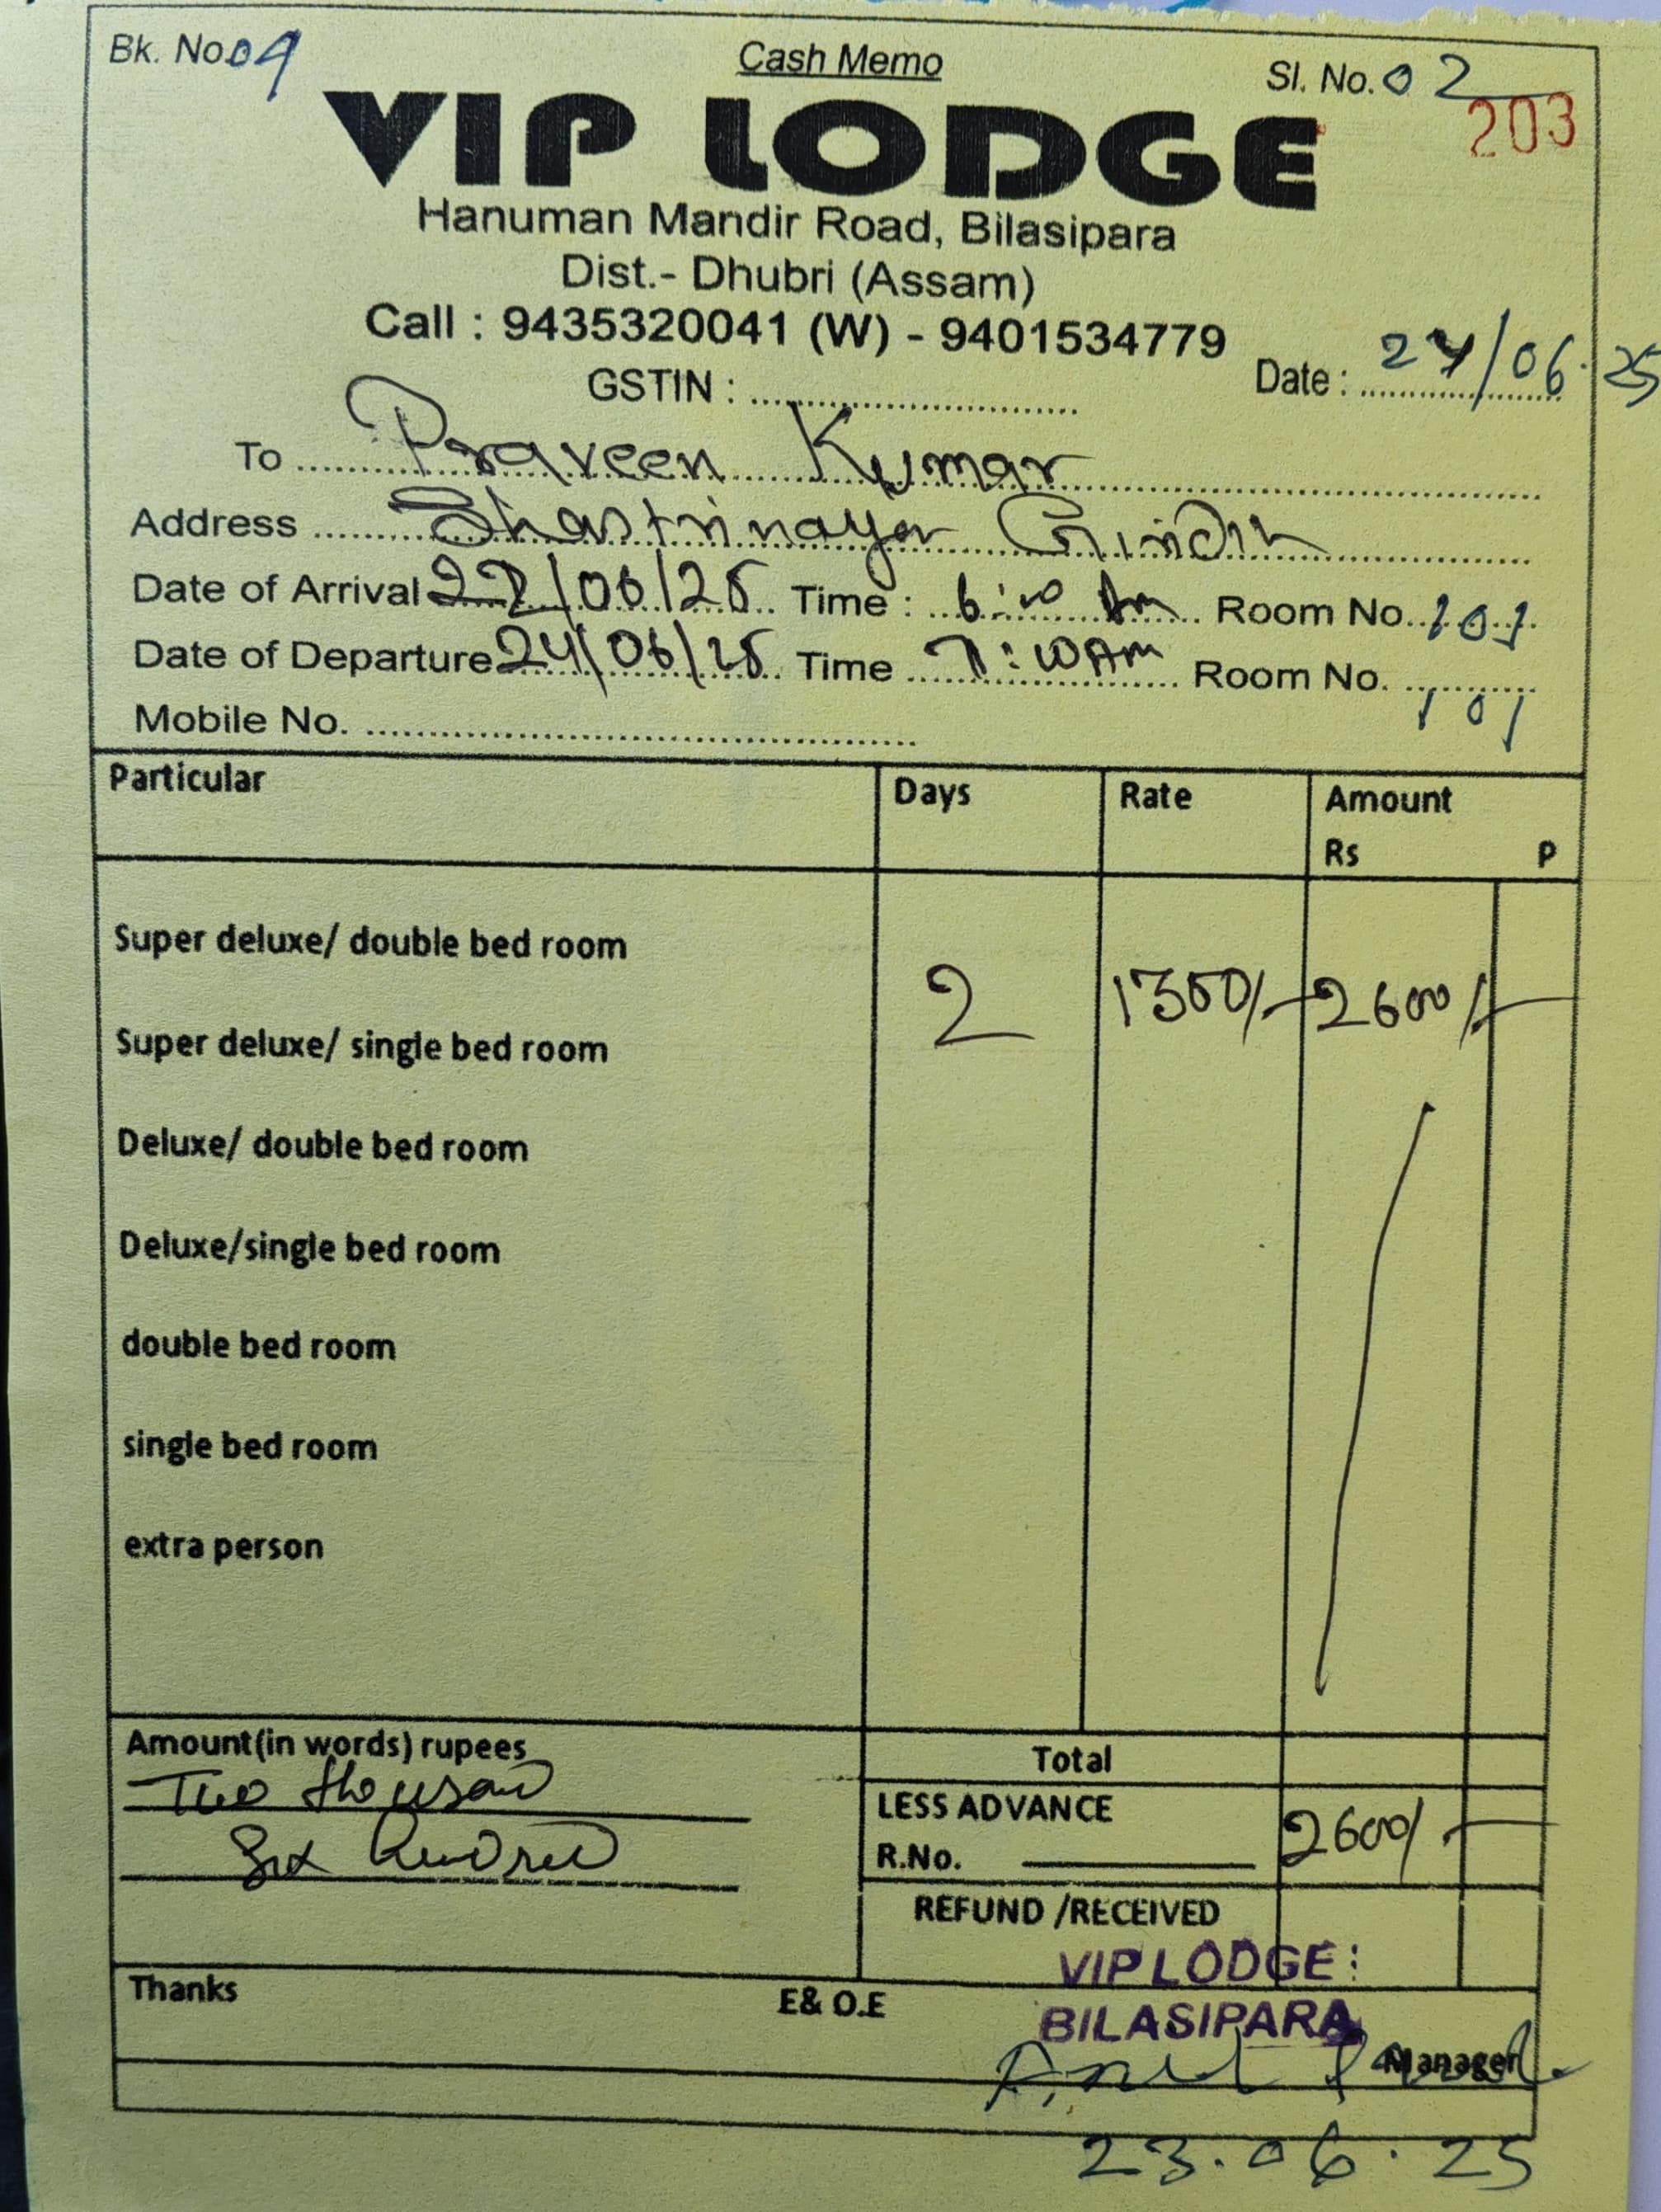 Bk. No. 04 Cash Memo Sl. No. 02
203
VIP LODGE
Hanuman Mandir Road, Bilasipara
Dist.- Dhubri (Assam)
Call : 9435320041 (W) - 9401534779
GSTIN : Date : 24/06.25
To Praveen Kumar
Address Shastrinagar
Date of Arrival 22/06/25 Time : 6:00 Am Room No. 101
Date of Departure 24/06/25 Time 7:10 AM Room No. 101
Mobile No.
Particular Days Rate Amount
Rs P
Super deluxe/ double bed room
2 1300/- 2600/-
Super deluxe/ single bed room
Deluxe/ double bed room
Deluxe/single bed room
double bed room
single bed room
extra person
Amount(in words) rupees Total
Two thousand
LESS ADVANCE
Six hundred R.No. 2600/-
REFUND /RECEIVED
VIP LODGE:
Thanks E& O.E
BILASIPARA
Manager
23.06.25